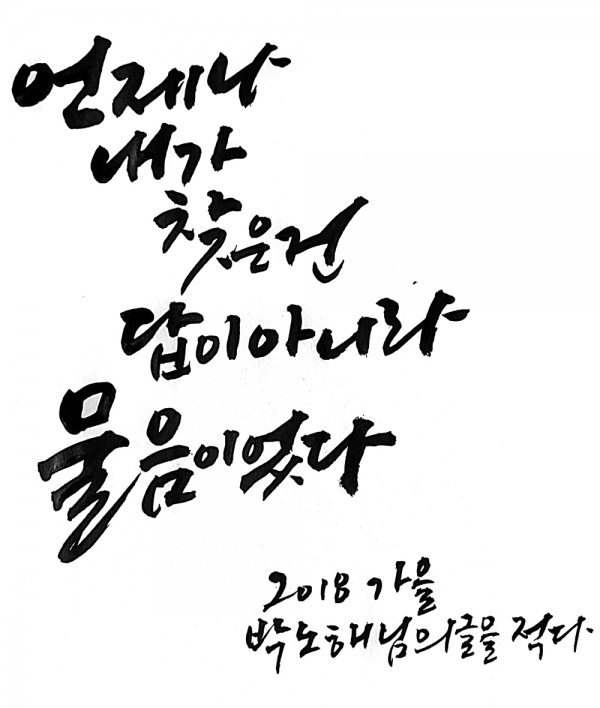 언제나
내가
찾은건
답이아니라
물음이었다
2018 가을
박노해님의글을 적다.